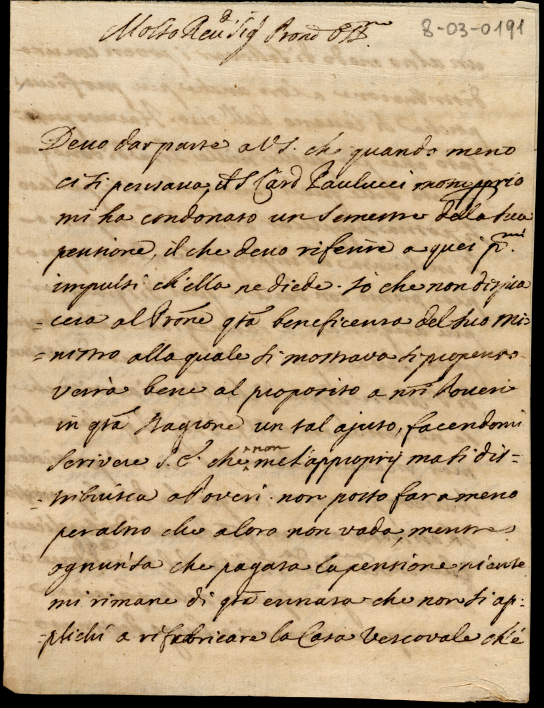 8-03-0191
Molto Rev. Sig. Prone Oss.mo
Devo dar parte a V.S. che quando meno
ci si pensava, il S. Card Paulucci motu proprio
mi ha condonato un semestre della sua
pensione, il che devo riferire a quei p.mi
impulsi ch'ella ne diede. So che non dispia
-cerà al Prone qta beneficenza del suo mi
-nistro alla quale si mostrava sì propenso
verrà bene al proposito a nri Poveri
in qta stagione un tal ajuto, facendomi
scrivere S.E. che non me l'approprij ma si dis-
-tribuisca a Poveri. non posso far a meno
peraltro che a loro non vada, mentre
ognun sa che pagata la pensione niente
mi rimane di qta entrata che non si ap-
-plichi a rifabricare la Casa Vescovale ch'è